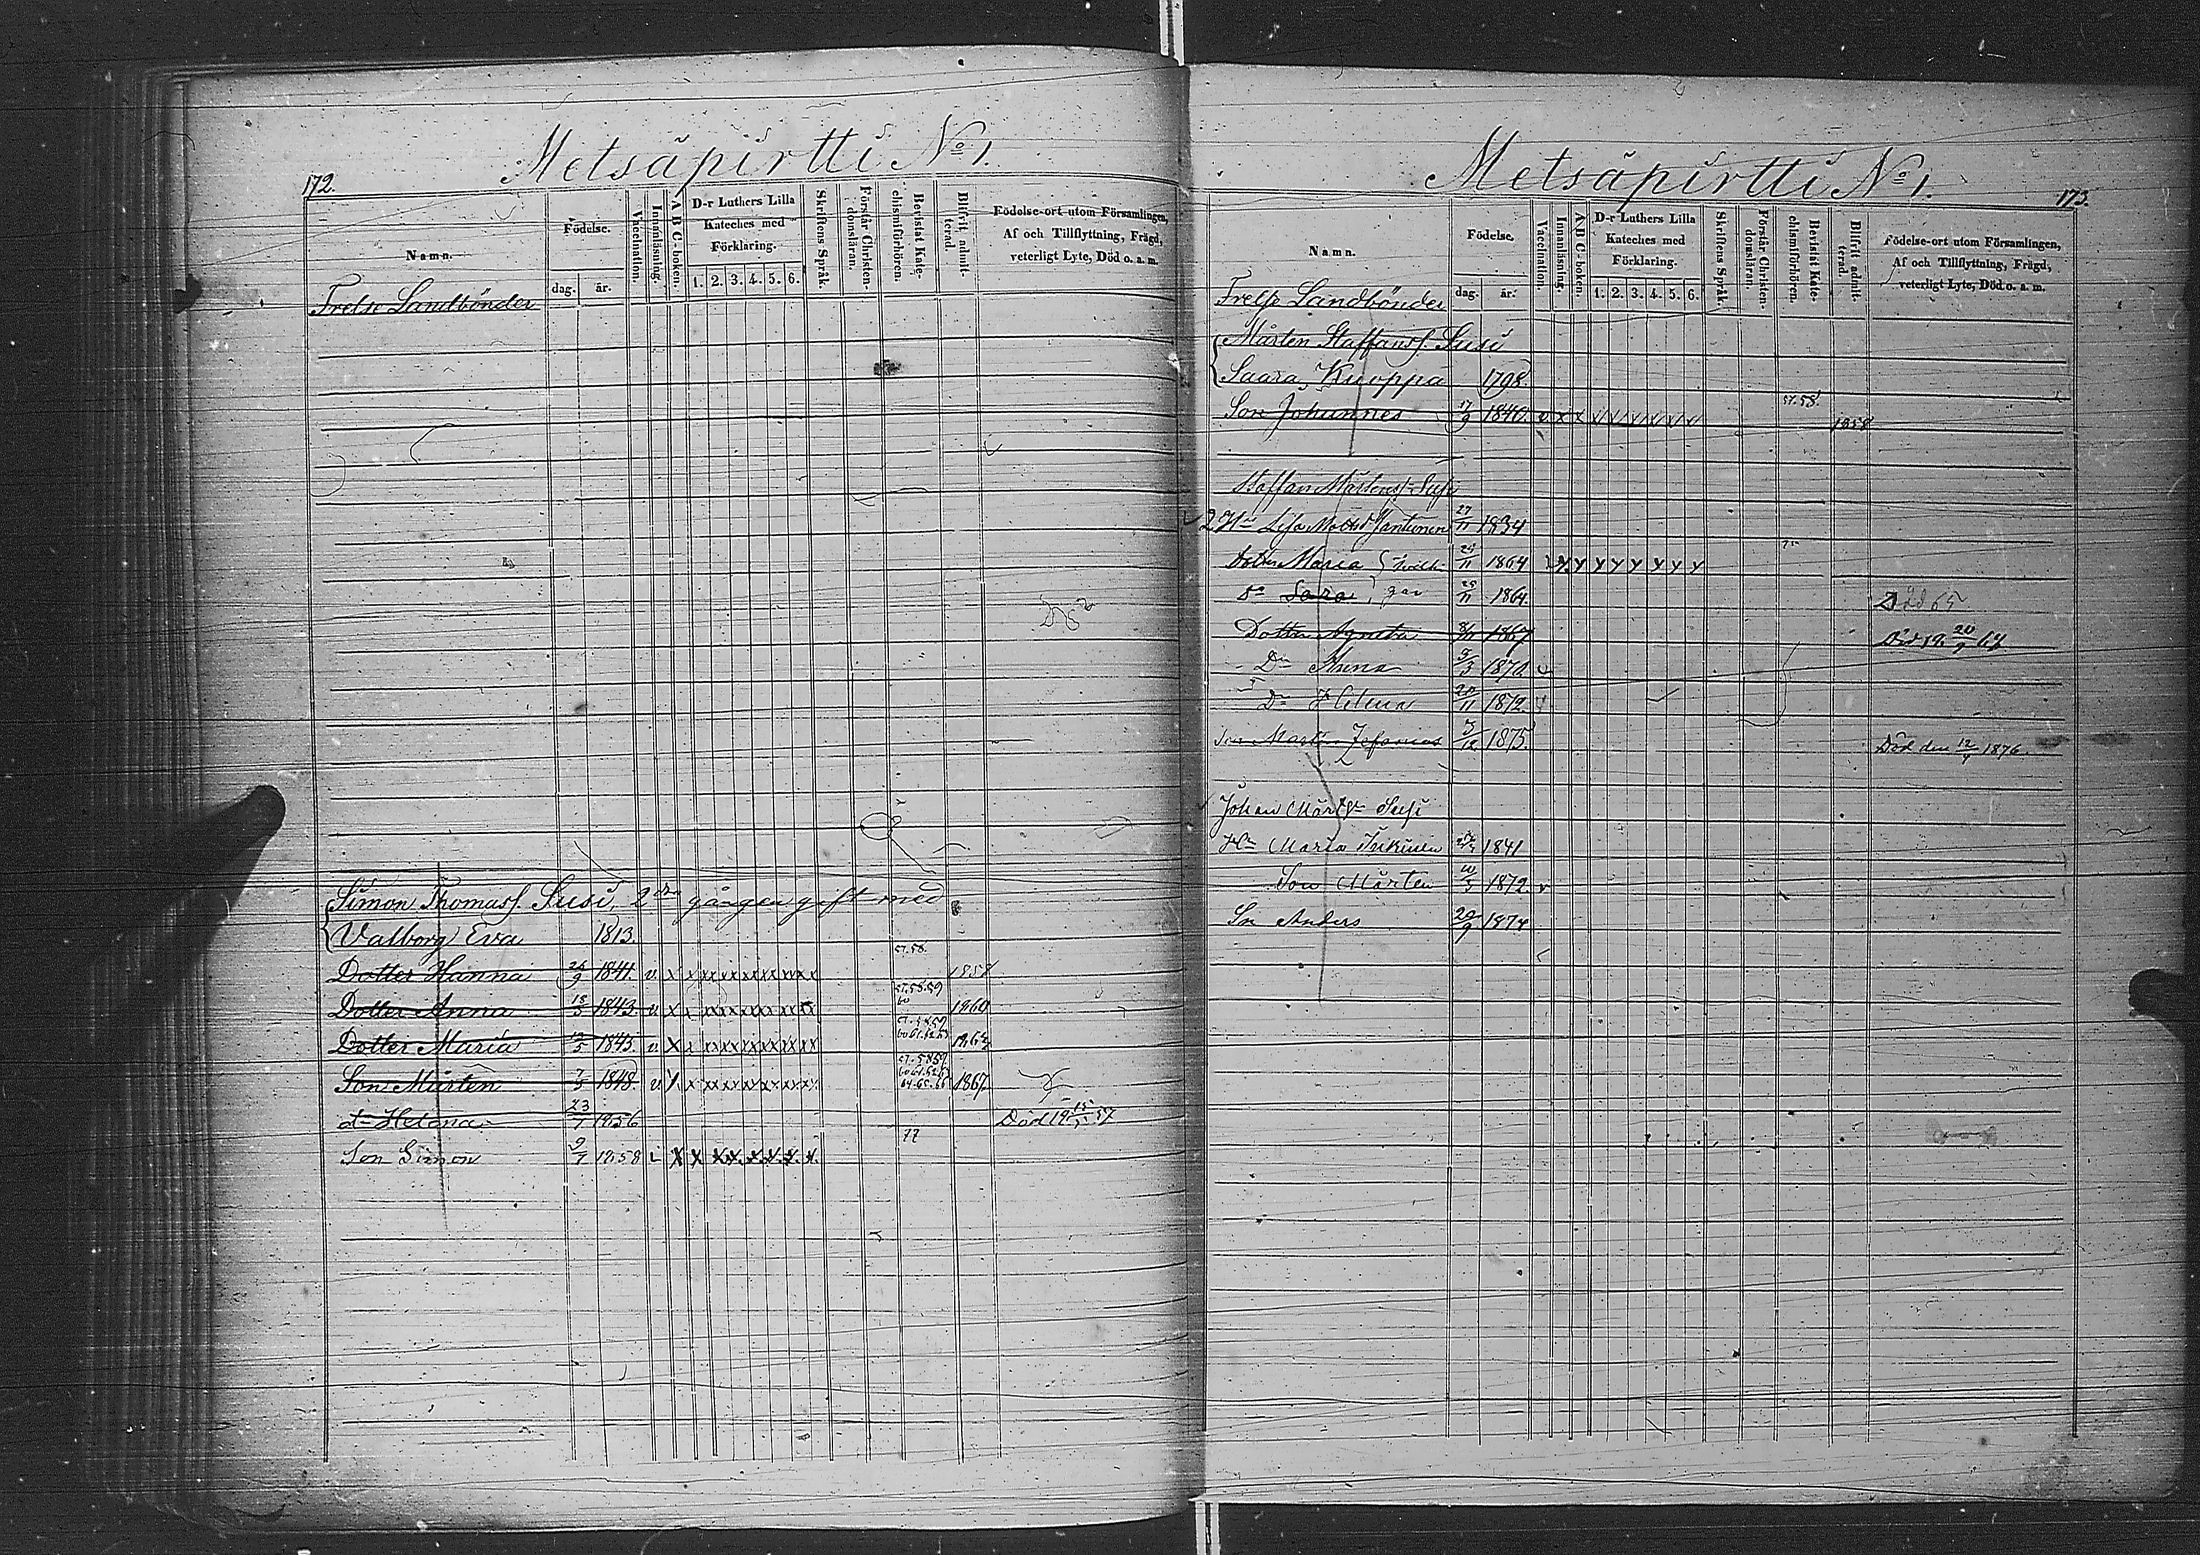 172.
Metsäpirtti No 1.
Namn.
Födelse.
dag.
år.
Vaccination.
Innanläsning.
A B C-boken.
D-r Luthers Lilla
Kateches med
Förklaring.
1. 2. 3. 4. 5. 6.
Skriftens Språk.
Förstår Christen-
domsläran.
Bevistat Kate-
chismiförhören.
Blifvit admit-
terad.
Födelse-ort utom Församlingen,
Af och Tillflyttning, Frägd,
veterligt Lyte, Död o. a. m.
Frelse Landbönder
Simon Thomass. Susi, 2dra gången gift med
Valborg Eva 1813.
57.58.
Dotter Hanna 26/9 1841. v. x x x x x x x x x x 1858
57.58.59
60
Dotter Anna 18/5 1843. v. x x x x x x x x x x 1860
Dotter Maria 1845. v. x x x x x x x x x x
Son Mårten 7/5 1848. v x x x x x x x x x x 1867
d- Helena 23/7 1856 Död
77
Son Simon 9/7 1858 x x x x x x x x
173.
Metsäpirtti No 1.
Namn.
Födelse.
dag.
år.
Vaccination.
Innanläsning.
A B C-boken.
D-r Luthers Lilla
Kateches med
Förklaring.
1. 2. 3. 4. 5. 6.
Skriftens Språk.
Förstår Christen-
domsläran.
Bevistat Kate-
chismiförhören.
Blifvit admit-
terad.
Födelse-ort utom Församlingen,
Af och Tillflyttning, Frägd,
veterligt Lyte, Död o. a. m.
Frelse Landbönder
Mårten Staffanss. Susi
Saara Kuoppa 1798.
57.58.
Son Johannes 17/9 1840. v x x x x x x x x 1858
Staffan Mårtenss. Susi
2 H- Lisa Jantunen 27/11 1834
Dotter Maria 1864 x x x x x x x
do Sara 25/11 1864. Död 65
Dotter Agneta 1867 Död
Dr Anna 3/3 1870. v
Dr Helena 20/11 1872. v
Mårten Johannes 1875. Död den 1876
Johan Mårtss. Susi
H- Maria Inkinen 1841
Son Mårten 1872. v
Sn Anders 29/9 1874